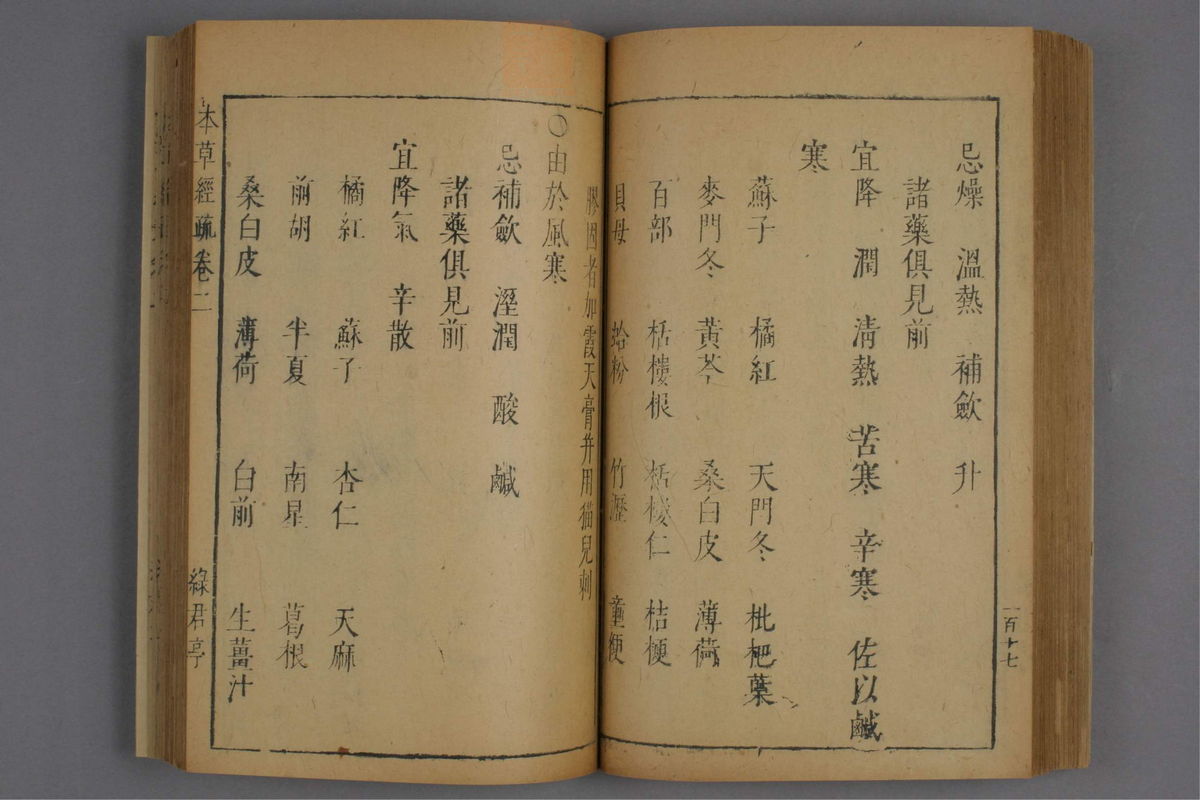 忌燥　溫熱　補歛　升
諸藥俱見前
宜降　潤　清熱　苦寒　辛寒　佐以鹹
寒
蘇子　橘紅　天門冬　枇杷葉
麥門冬　黃芩　桑白皮　薄荷
百部　栝樓根　栝樓仁　桔梗
貝母　蛤粉　竹瀝　童便
膠固者加霞天膏并用猫兒刺
○由於風寒
忌補歛　溼潤　酸　鹹
諸藥俱見前
宜降氣　辛散
橘紅　蘇子　杏仁　天麻
前胡　半夏　南星　葛根
桑白皮　薄荷　白前　生薑汁
本草經疏卷二　綠君亭
一百十七